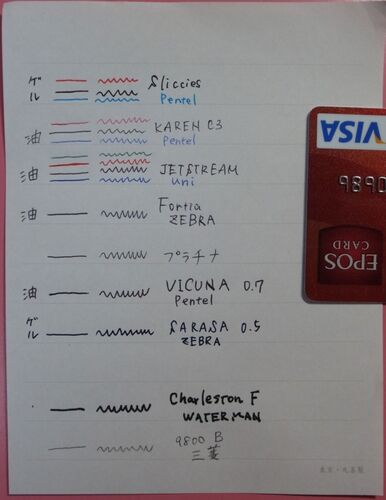 ゲ
ル
Sliccies
Pentel
油
KAREN C3
Pentel
油
JETSTREAM
uni
油
Fortia
ZEBRA
プラチナ
油
VICUNA 0.7
Pentel
ゲ
ル
SARASA 0.5
ZEBRA
Charleston F
WATERMAN
9800 B
三菱
VISA
9890
EPOS
CARD